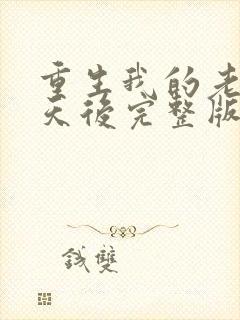 重生我的老
天後完整版
錢雙